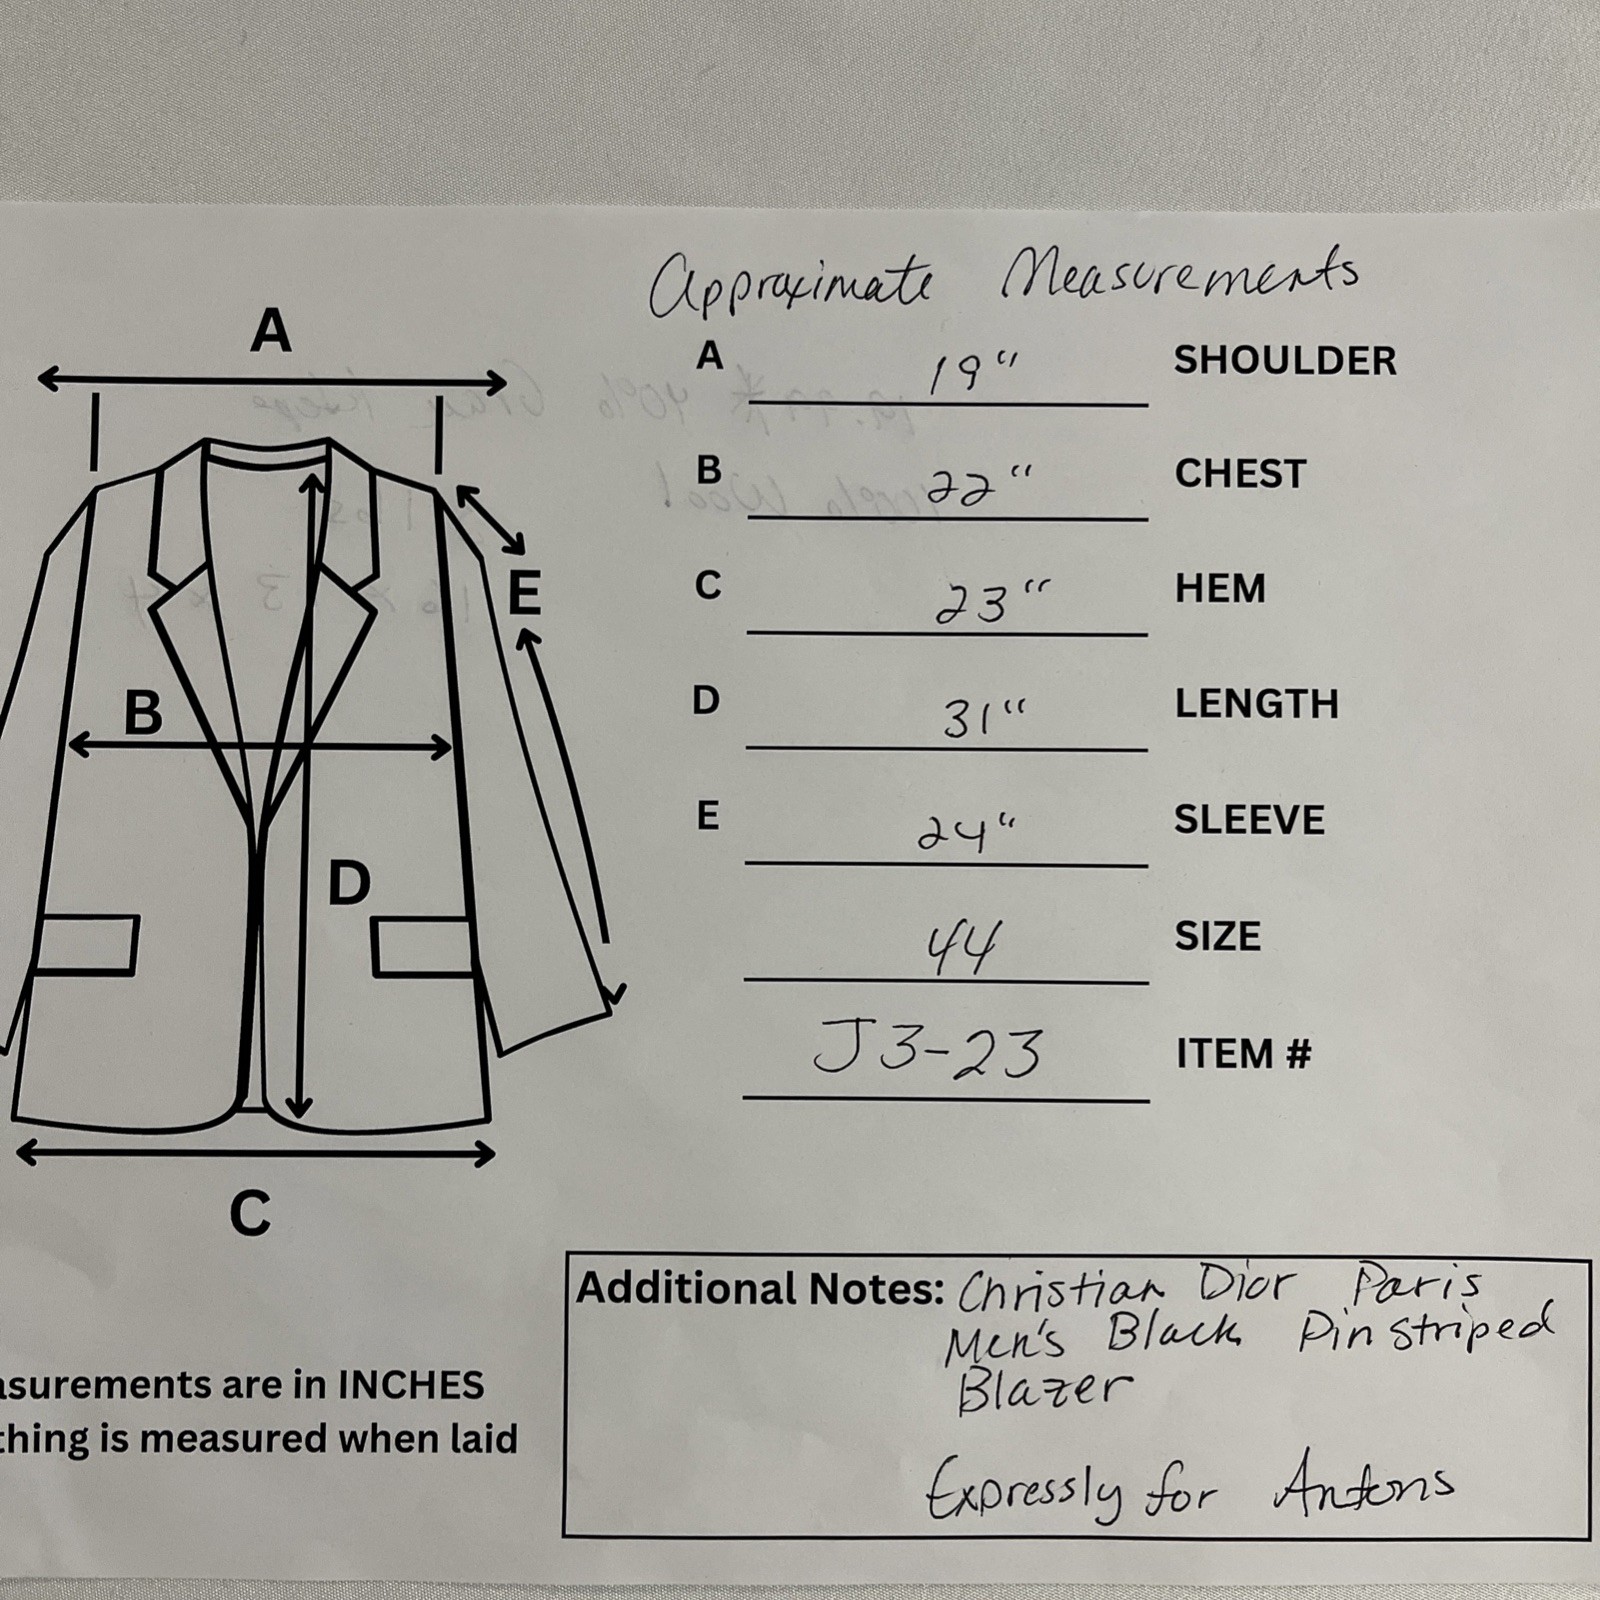 Approximate Measurements
A
A 19" SHOULDER
B 22" CHEST
C 23" HEM
D 31" LENGTH
E 24" SLEEVE
44 SIZE
J3-23 ITEM #
E
B
D
C
Additional Notes: Christian Dior Paris
Men's Black Pin Striped
Blazer
Expressly for Antons
asurements are in INCHES
thing is measured when laid